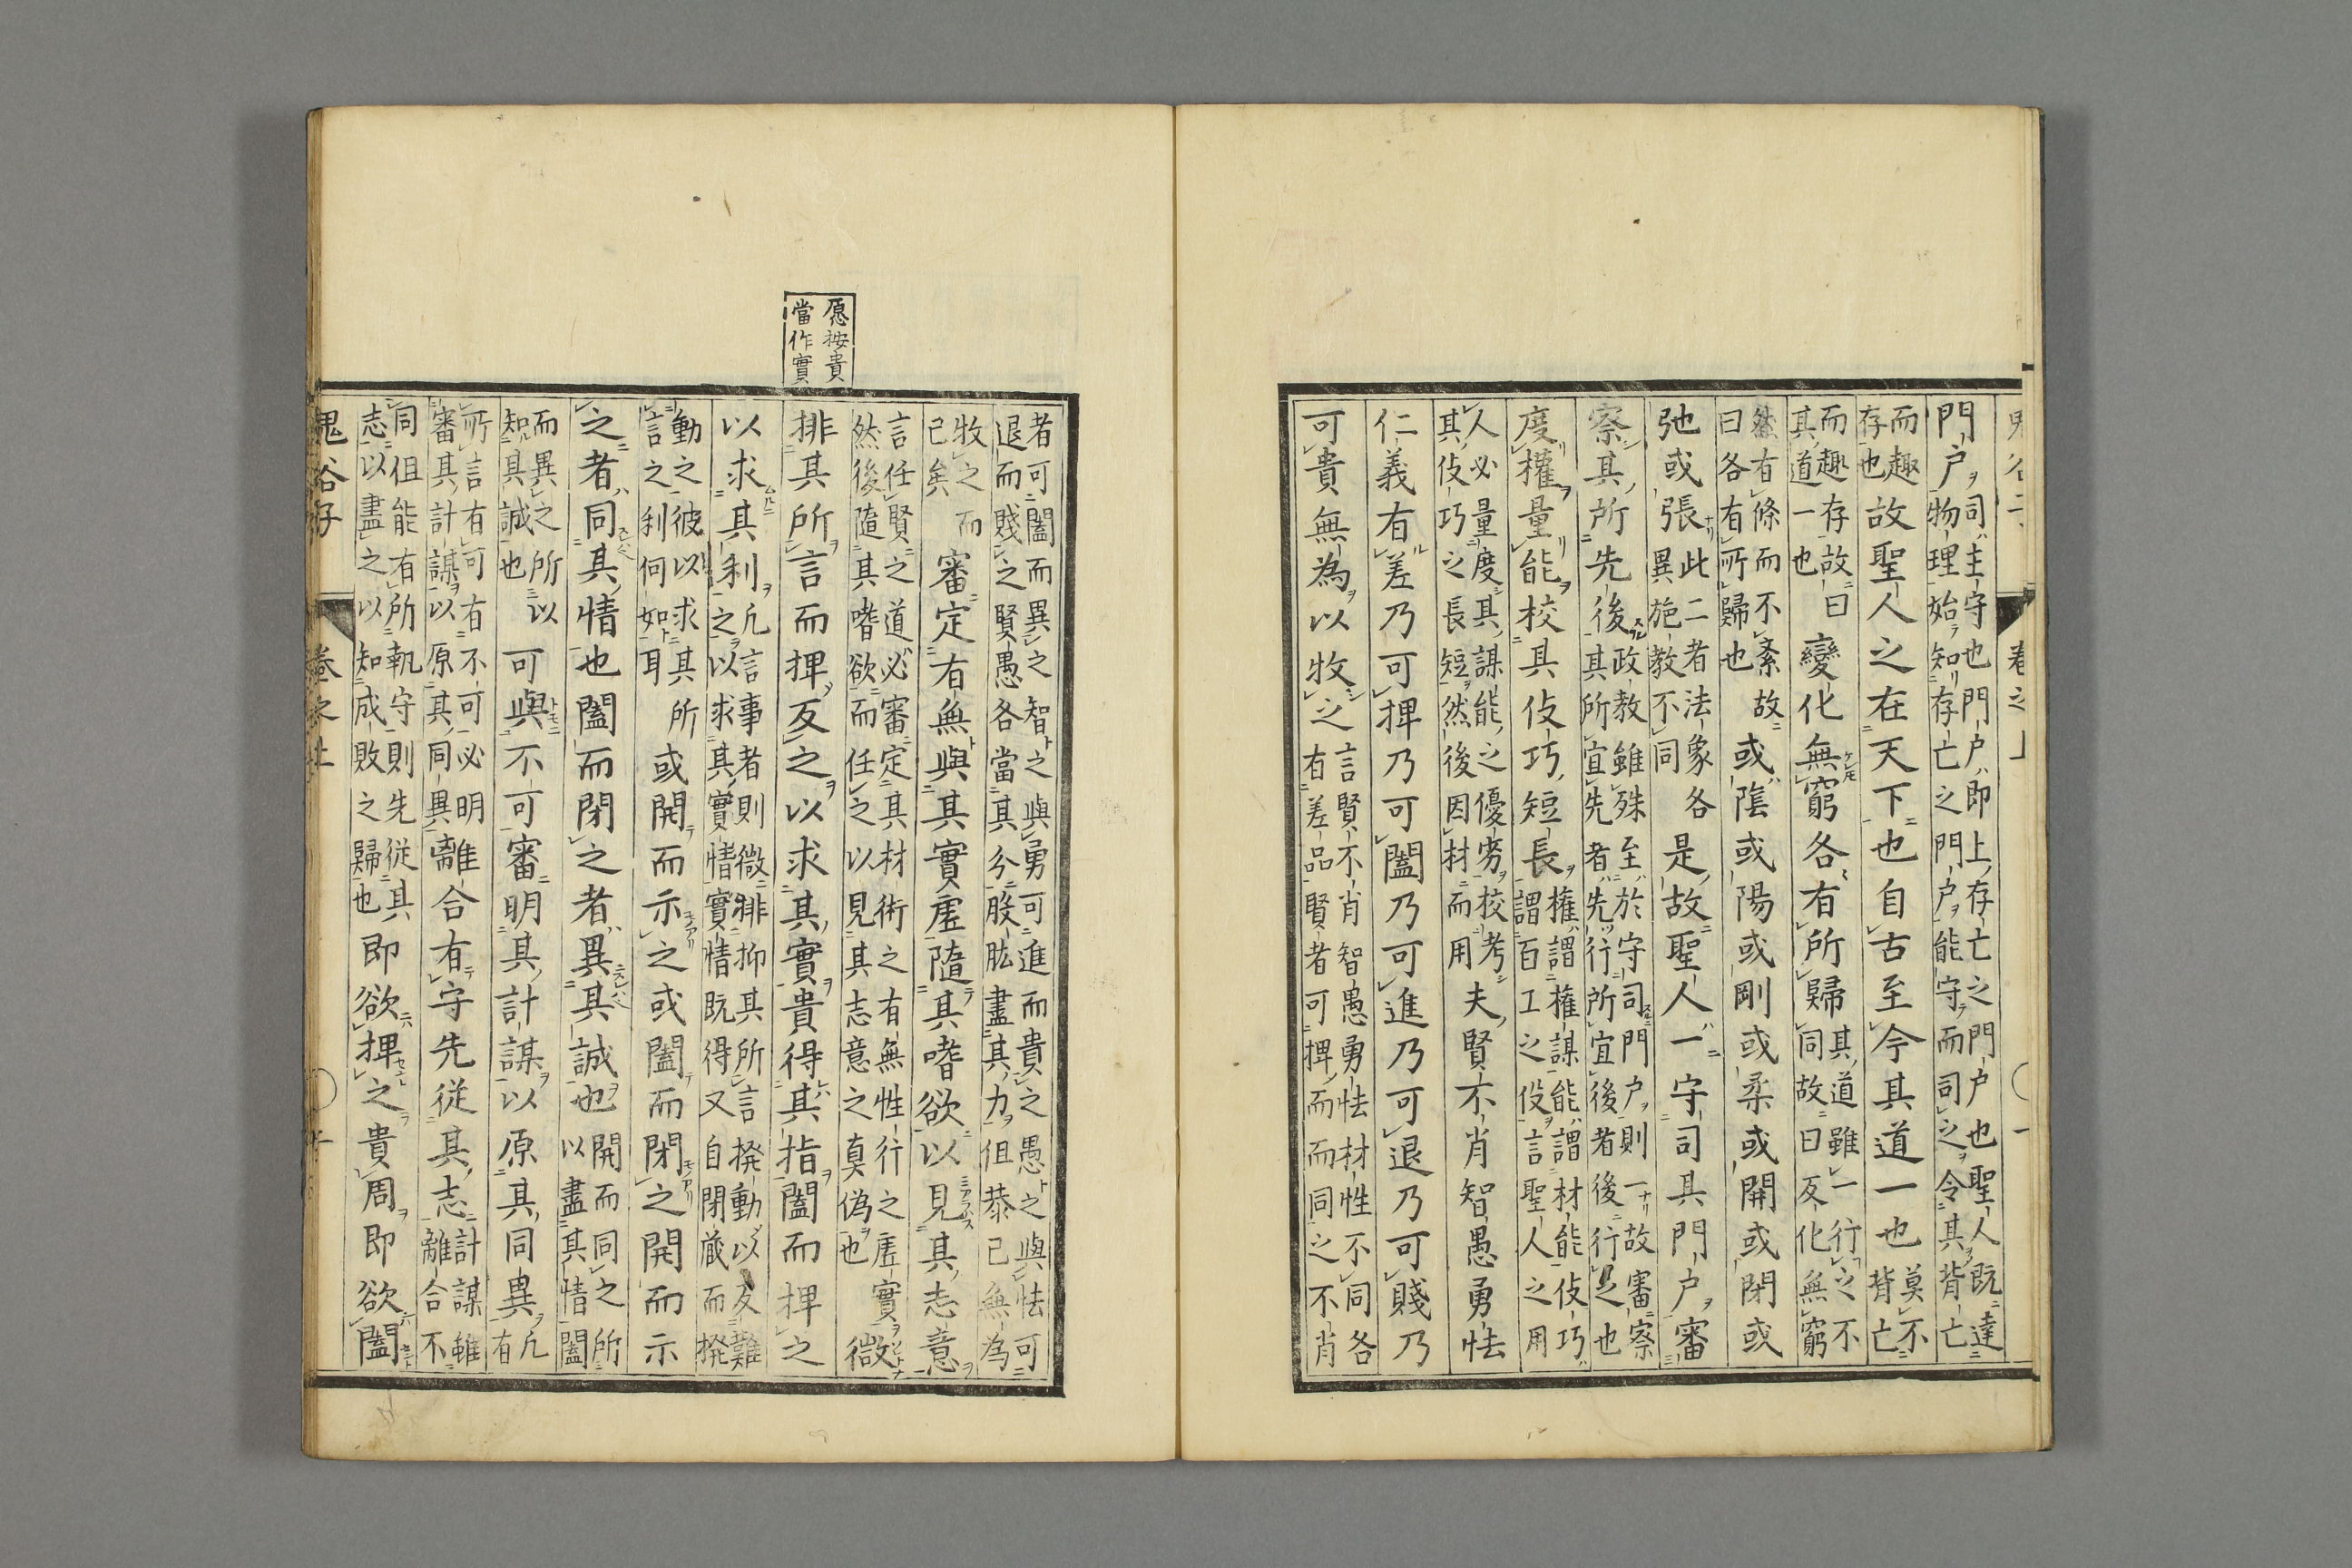 鬼谷子　卷之上　一
門戶司主守也門戶即上存亡之門戶也聖人既達
物理始知存亡之門戶能守而司之令其背亡
而趣
存也
故聖人之在天下也自古至今其道一也
莫不
背亡
而趣存故曰
其道一也
變化無窮各有所歸
其道雖一行之不
同故曰反化無窮
然有條而不紊故
曰各有所歸也
或陰或陽或剛或柔或開或閉或
弛或張
此二者法象各
異施教不同
是故聖人一守司其門戶審
察其所先後
政教雖殊至於守司門戶則一故審察
其所宜先者先行所宜後者後行之也
度權量能校其伎巧短長
權謂權謀能謂材能伎巧
謂百工之伇言聖人之用
人必量度其謀能之優劣校考
其伎巧之長短然後因材而用
夫賢不肖智愚勇怯
仁義有差乃可捭乃可闔乃可進乃可退乃可賤乃
可貴無為以牧之
言賢不肖智愚勇怯材性不同各
有差品賢者可捭而而同之不肖
者可闔而異之智之與勇可進而貴之愚之與怯可
退而賤之賢愚各當其分股肱盡其力但恭己無為
牧之而
已矣
審定有無與其實虛隨其嗜欲以見其志意
言任賢之道必審定其材術之有無性行之虛實
然後隨其嗜欲而任之以見其志意之真偽也
微
愿按貴
當作實
排其所言而捭反之以求其實貴得其指闔而捭之
以求其利
凡言事者則微排抑其所言撥動以反難
之以求其實情實情既得又自閉藏而撥
動之彼以求其所
言之利何如耳
或開而示之或闔而閉之開而示
之者同其情也闔而閉之者異其誠也
開而同之所
以盡其情闔
而異之所以
知其誠也
可與不可審明其計謀以原其同異
凡
有
所言有可有不可必明
審其計謀以原其同異
離合有守先從其志
計謀雖
離合不
同但能有所執守則先從其
志以盡之以知成敗之歸也
即欲捭之貴周即欲闔
鬼谷子　卷之上